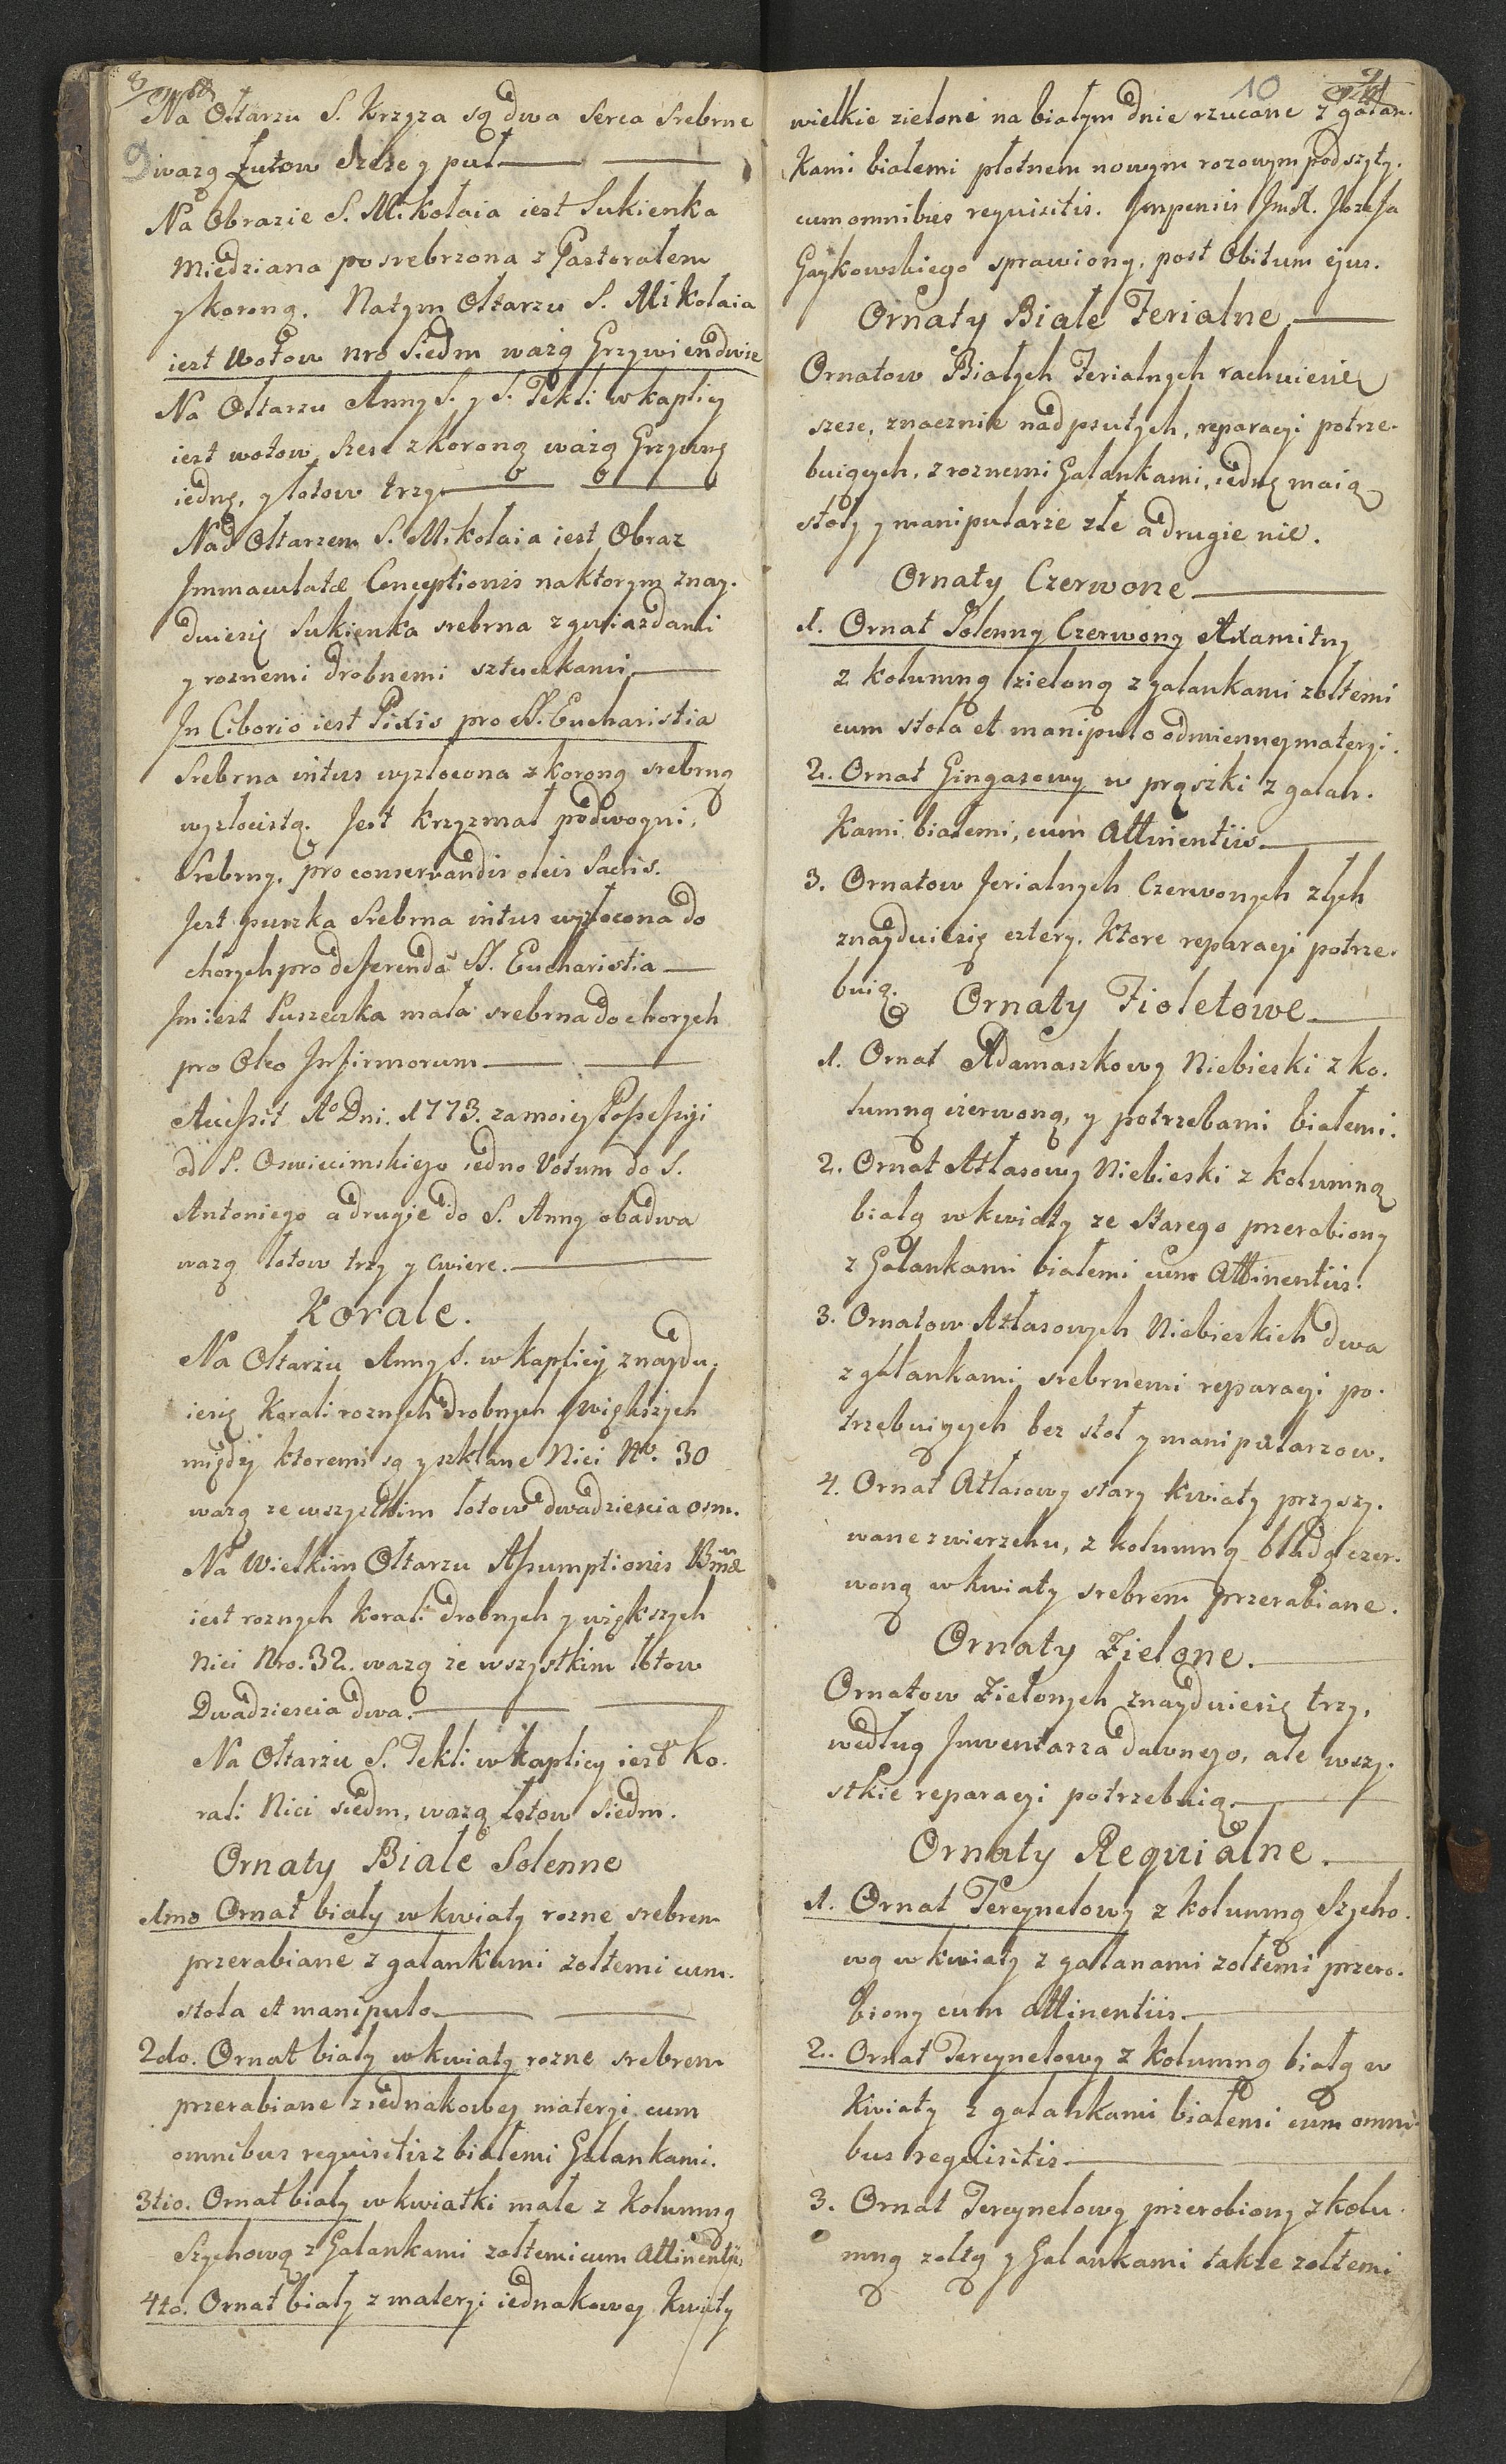 8
Na Ołtarzu S. Krzyza są dwa serca srebrne
9 ważą Łutow szesc y puł
Na Obrazie S. Mikołaia iest Sukienka
Miedziana posrebrzona z Pastorałem
y koroną. Natym Ołtarzu S. Mikołaia
iest Wotow nro siedm ważą Grzywien dwie
Na Ołtarzu Anny S. y S. Tekli w kaplicy
iest wotow szesc z koroną ważą Grzywnę
iednę, y łotow trzy
Nad Ołtarzem S. Mikołaia iest Obraz
Immaculatæ Conceptionis naktorym znay.
duiesię Sukienka srebrna z gwiazdami
y roznemi drobnemi sztuczkami
In Ciborio iest Pixis pro SS. Eucharistia
Srebrna intus wyzłocona z koroną srebrną
wyzłocistą. Jest krzyzmal podwoyni,
Srebrny, pro conservandis oleis Sacris.
Jest puszka Srebrna intus wyzłocona do
chorych pro deferenda SS. Eucharistia
Jm iest Puszeczka mała srebrna do chorych
pro Oleo Infirmorum
Accessit Aº Dni. 1773. za moiey Possessyi
od P. Oswiecimskiego iedno Votum do S.
Antoniego a drugie do S. Anny obadwa
wazą łotow trzy y cwierc.
Korale.
Na Ołtarżu Anny S. w kaplicy znaydu,
iesię Korali roznych drobnych y większych
między ktoremi są y szklane Nici No. 30
wazą ze wszystkim łotow dwadziescia osm.
Na Wielkim Ołtarzu Assumptionis Bmæ
iest roznych korali drobnych y większych
Nici Nro. 32. wazą ze wszystkim łotow
Dwadziescia dwa.
Na Ołtarżu S. Tekli w kaplicy iest ko.
rali Nici siedm, wazą łotow siedm.
Ornaty Białe Solenne
1mo Ornat biały w kwiaty rozne srebrem
przerabiane z galankami zołtemi cum.
stola et manipulo
2do. Ornat biały w kwiaty rozne srebrem
przerabiane z iednakowey materyi cum
omnibus requisitis z białemi Galankami.
3tio. Ornat biały w kwiatki małe z Kolumną
Szychową z Galankami zołtemi cum Attinentijs
4to. Ornat biały z materyi iednakowey kwiaty
10
wielkie zielone na białym dnie rzucane z galan.
Kami białemi płotnem nowym rozowym podszyty.
cum omnibus requisitis. Impensis JmX. Jozefa
Gaykowskiego sprawiony, post Obitum ejus.
Ornaty Białe Ferialne
Ornatow Białych Ferialnych rachuiesię
szesc, znacznie nadpsutych, reparacyi potrze-
buiących, z roznemi Galankami, iedne maią
stoły y manipularze złe a drugie nie.
Ornaty Czerwone
1. Ornat Solenny Czerwony Axamitny
z kolumną zieloną z galankami zołtemi
cum stola et manipulo odmienney materyi.
2. Ornat Gingasowy w prążki z galan.
Kami białemi, cum Attinentiis
3. Ornatow ferialnych Czerwonych złych
znayduiesię cztery. Ktore reparacyi potrze.
buią.
Ornaty Fioletowe
1. Ornat Adamaszkowy Niebieski z ko.
lumną czerwoną, y potrzebami białemi.
2. Ornat Atłasowy Niebieski z kolumną
białą w kwiaty ze starego przerabiony
z Galankami białemi cum Attinentiis.
3. Ornatow Atłasowych Niebieskich dwa
z galankami srebrnemi reparacyi po.
trzebuiących bez stoł y manipularzow.
4. Ornat Atłasowy stary kwiaty przyszy.
wane zwierzchu, z kolumną bladą czer.
woną w kwiaty srebrem przerabiane.
Ornaty Zielone.
Ornatow Zielonych znayduiesię trzy,
według Inwentarza dawnego, ale wszy.
stkie reparacyi potrzebuią
Ornaty Requialne.
1. Ornat Tercynelowy z kolumną Szycho.
wą w kwiaty z gallanami zołtemi przero.
biony cum attinentiis
2. Ornat Tercynelowy z kolumną białą w
Kwiaty z galankami białemi cum omni
bus requisitis
3. Ornat Tercynelowy przerobiony z kolu.
mną zołtą y Galankami także zołtemi